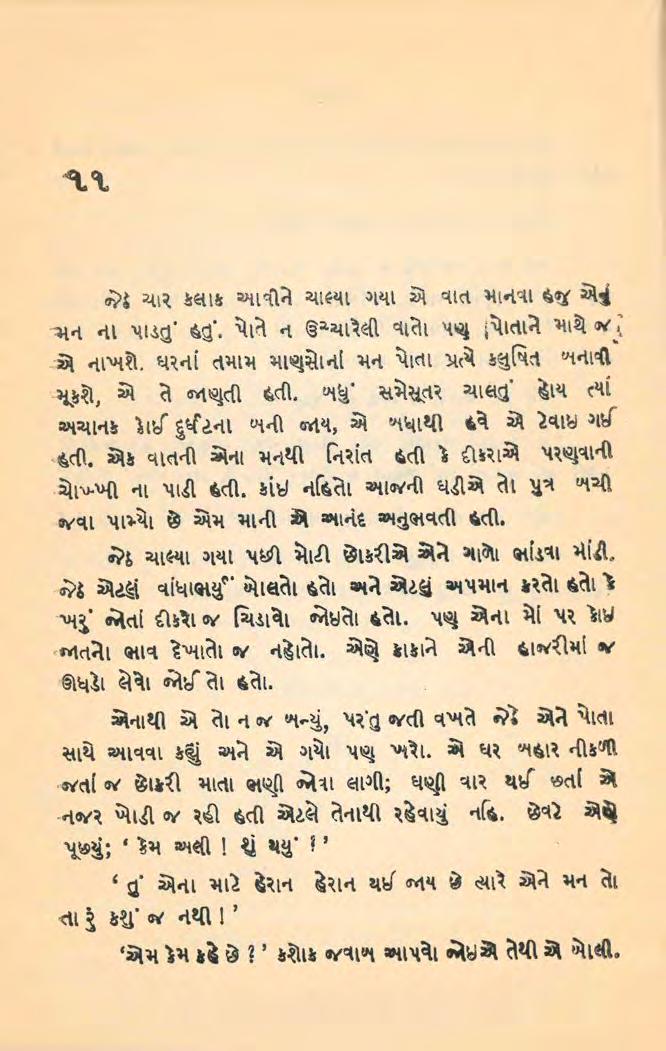 ૧૧
જેઠ ચાર કલાક આવીને ચાલ્યા ગયા એ વાત માનવા હજુ એનું
મન ના પાડતું હતું. પોતે ન ઉચ્ચારેલી વાતો પણ પોતાને માથે જ
એ નાખશે. ઘરનાં તમામ માણસોનાં મન પોતા પ્રત્યે કલુષિત બનાવી
મૂકશે, એ તે જાણતી હતી. બધું સમેસૂતર ચાલતું હોય ત્યાં
અચાનક કોઈ દુર્ઘટના બની જાય, એ બધાથી હવે એ ટેવાઇ ગઈ
હતી. એક વાતની એના મનથી નિરાંત હતી કે દીકરાએ પરણવાની
ચોખ્ખી ના પાડી હતી. કાંઇ નહિતો આજની ઘડીએ તો પુત્ર બચી
જવા પામ્યો છે એમ માની એ આનંદ અનુભવતી હતી.
જેઠ ચાલ્યા ગયા પછી મોટી છોકરીએ એને ગાળો ભાંડવા માંડી.
જેઠ એટલું વાંધાભર્યું બોલતો હતો અને એટલું અપમાન કરતો હતો કે
ખરું જોતાં દીકરો જ ચિડાવો જોઇતો હતો. પણ એના મોં પર કોઇ
જાતનો ભાવ દેખાતો જ નહોતો. એણે કાકાને એની હાજરીમાં જ
ઊધડો લેવો જોઈ તો હતો.
એનાથી એ તો ન જ બન્યું, પરંતુ જતી વખતે જેઠે એને પોતા
સાથે આવવા કહ્યું અને એ ગયો પણ ખરો. એ ઘર બહાર નીકળી
જતાં જ છોકરી માતા ભણી જોવા લાગી; ઘણી વાર થઈ છતાં એ
નજર ખોડી જ રહી હતી એટલે તેનાથી રહેવાયું નહિ. છેવટે એણે
પૂછયું; ‘ કેમ અલી ! શું થયું ?’
‘ તું એના માટે હેરાન હેરાન થઇ જાય છે ત્યારે એને મન તો
તારું કશું જ નથી ! ’
‘એમ કેમ કહે છે ? ’ કશોક જવાબ આપવો જોઇએ તેથી એ બોલી.